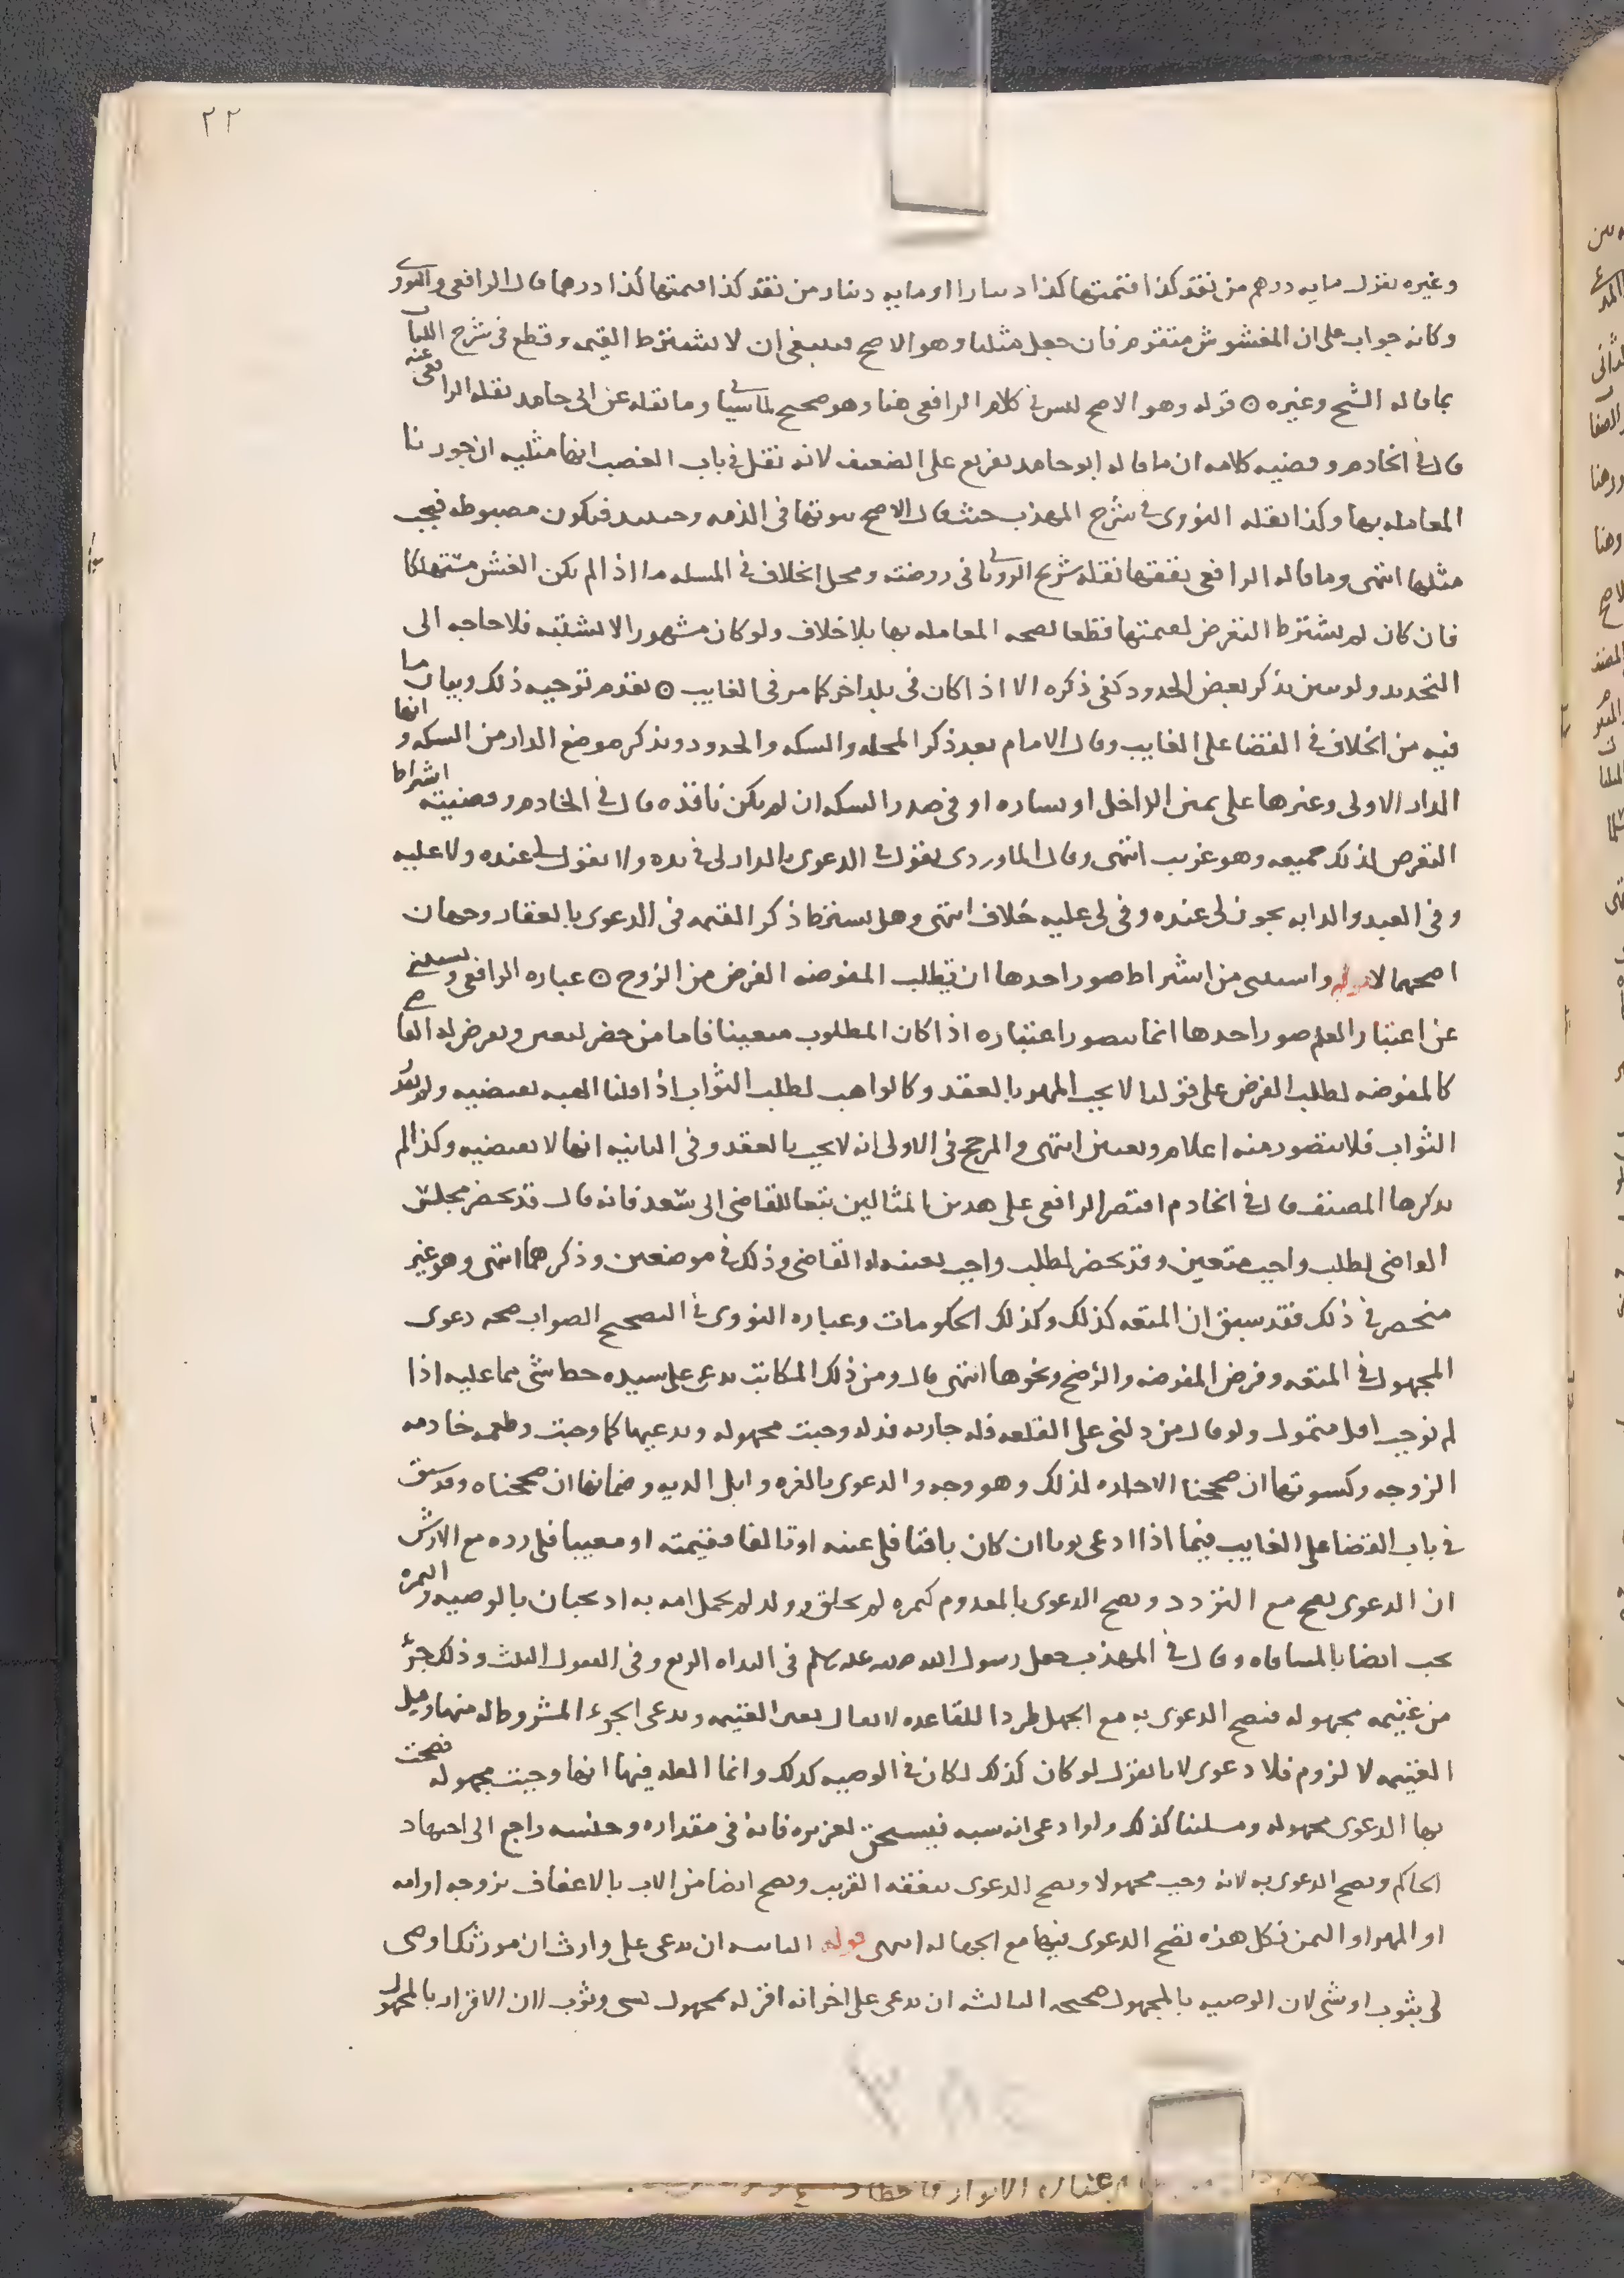 ٢٢
وغيره بقول مايه درهم من نقد كذا قيمتها كذا دينارا او مايه دينار من نقد كذا قيمتها كذا درهما قال الرافعي والنووي
وكانه جواب على ان المغشوش متقوم فان جعل مثليا وهو الاصح فينبغي ان لا يشترط القيمه وقطع في شرح اللباب
بما قاله الشيخ وغيره ⊙ قوله وهو الاصح ليس في كلام الرافعي هنا وهو صحيح لما سياتي وما نقله عن ابي حامد نقله الرافعي عنه
قال في الخادم وقضيه كلامه ان ما قاله ابو حامد تفريع على الضعيف لانه نقل في باب الغصب انها مثليه ان جوزنا
المعامله بها وكذا نقله النووي في شرح المهذب حيث قال الاصح ثبوتها في الذمه وحينيد فيكون مضبوطه فيجب
مثلها انتهى وما قاله الرافعي تفقها نقله شريح الروياني في روضته ومحل الخلاف في المسله ما اذا لم يكن الغش مستهلكا
فان كان لم يشترط التعرض لقيمتها قطعا لصحه المعامله بها بلا خلاف ولو كان مشهورا لا يشتبه فلا حاجه الى
التحديد ولو تبين بذكر بعض الحدود كفى ذكره الا اذا كان في بلد اخر كما مر في الغايب ⊙ تقدم توجيه ذلك وبيان ما
فيه من الخلاف في القضا على الغايب وقال الامام بعد ذكر المحله والسكه والحدود ويذكر موضع الدار من السكه وانها
الدار الاولى وغيرها على يمين الداخل او يساره او في صدر السكه ان لم يكن نافذه قال في الخادم وقضيته اشتراط
التعرض لذلك جميعه وهو غريب انتهى وقال الماوردي يقول في الدعوى بالدار لي في يده ولا يقول لي عنده ولا عليه
وفي العبد والدابه يجوز لي عنده وفي لي عليه خلاف انتهى وهل يشترط ذكر القيمه في الدعوى بالعقار وجهان
اصحهما لا قوله واستثنى من اشتراط صور احدها ان تطلب المفوضه الفرض من الزوج ⊙ عباره الرافعي ويستثنى
عن اعتبار العلم صور احدها انما يتصور اعتباره اذا كان المطلوب متعينا فاما من حضر ليعين ويفرض له القاضي
كالمفوضه لطلب الفرض على قولنا لا يجب المهر بالعقد وكالواهب لطلب الثواب اذا قلنا الهبه تقتضيه ولم يقدر
الثواب فلا يتصور منه اعلام وتعيين انتهى والمرجح في الاولى انه لا يجب بالعقد وفي الثانيه انها لا تقتضيه وكذا لم
يذكرها المصنف قال في الخادم اقتصر الرافعي على هذين المثالين تبعا للقاضي ابي سعد فانه قال قد يحضر مجلس
القاضي لطلب واجب متعين وقد يحضر لطلب واجب يعينه له القاضي وذلك في موضعين وذكرهما انتهى وهو غير
منحصر في ذلك فقد سبق ان المتعه كذلك وكذلك الحكومات وعباره النووي في التصحيح الصواب صحه دعوى
المجهول في المتعه وفرض المفوضه والرضخ ونحوها انتهى قال ومن ذلك المكاتب يدعي على سيده حط شي مما عليه اذا
لم نوجب اقل متمول ولو قال من دلني على القلعه فله جاريه فدله وجبت مجهوله ويدعيها كما وجبت وطعمه خادمه
الزوجه وكسوتها ان صححنا الاجاره لذلك وهو وجه والدعوى بالغره وابل الديه وضمانها ان صححناه وقد سبق
في باب القضا على الغايب فيما اذا ادعى ثوبا ان كان باقيا فلي عينه او تالفا فقيمته او معيبا فلي رده مع الارش
ان الدعوى تصح مع التردد وتصح الدعوى بالمعدوم كثمره لم تخلق وولد لم تحمل امه به اد يجبان بالوصيه والثمره
تجب ايضا بالمساقاه وقال في المهذب جعل رسول الله صلى الله عليه وسلم في البداه الربع وفي القفول الثلث وذلك جزء
من غنيمه مجهوله فتصح الدعوى به مع الجهل طردا للقاعده لا يقال تعين الغنيمه ويدعي الجزء المشروط له منها وقبل
الغنيمه لا لزوم فلا دعوى لانا نقول لو كان كذلك لكان في الوصيه كذلك وانما العله فيها انها وجبت مجهوله فصحت
بها الدعوى مجهوله ومسلتنا كذلك ولو ادعى انه سبه فيستحق تعزيره فانه في مقداره وجنسه راجع الى اجتهاد
الحاكم وتصح الدعوى به لانه وجب مجهولا وتصح الدعوى بنفقه القريب وتصح ايضا من الاب بالاعفاف بزوجه او امه
او المهر او الثمن فكل هذه تصح الدعوى فيها مع الجهاله انتهى قوله الثانيه ان يدعي على وارث ان مورثك اوصى
لي بثوب او شي لان الوصيه بالمجهول صحيحه الثالثه ان يدعي على اخر انه اقر له بمجهول شي وثوب لان الاقرار بالمجهول